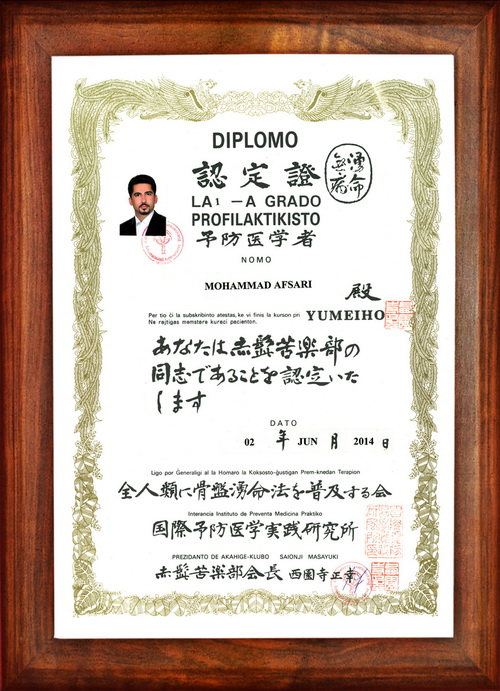 DIPLOMO
湧命
無病
認定證
LA 1 -A GRADO
PROFILAKTIKISTO
予防医学者
NOMO
MOHAMMAD AFSARI
殿
Per tio ĉi la subskribinto atestas, ke vi finis la kurson pri YUMEIHO
Ne rajtigas memstere kuraci pacienton.
あなたは赤髭苦楽部の
同志であることを認定いた
します
DATO
02 年 JUN 月 2014 日
Ligo por Ĝeneraligi al la Homaro la Koksosto-ĝustigan Prem-knedan Terapion
全人類に骨盤湧命法を普及する会
Interancia Instituto de Preventa Medicina Praktiko
国際予防医学実践研究所
PREZIDANTO DE AKAHIGE-KLUBO SAIONJI MASAYUKI
赤髭苦楽部会長 西園寺正幸